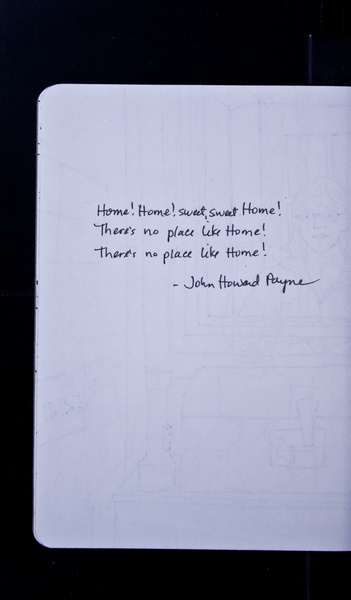 Home! Home! sweet, sweet Home!
There's no place like Home!
There's no place like Home!
- John Howard Payne